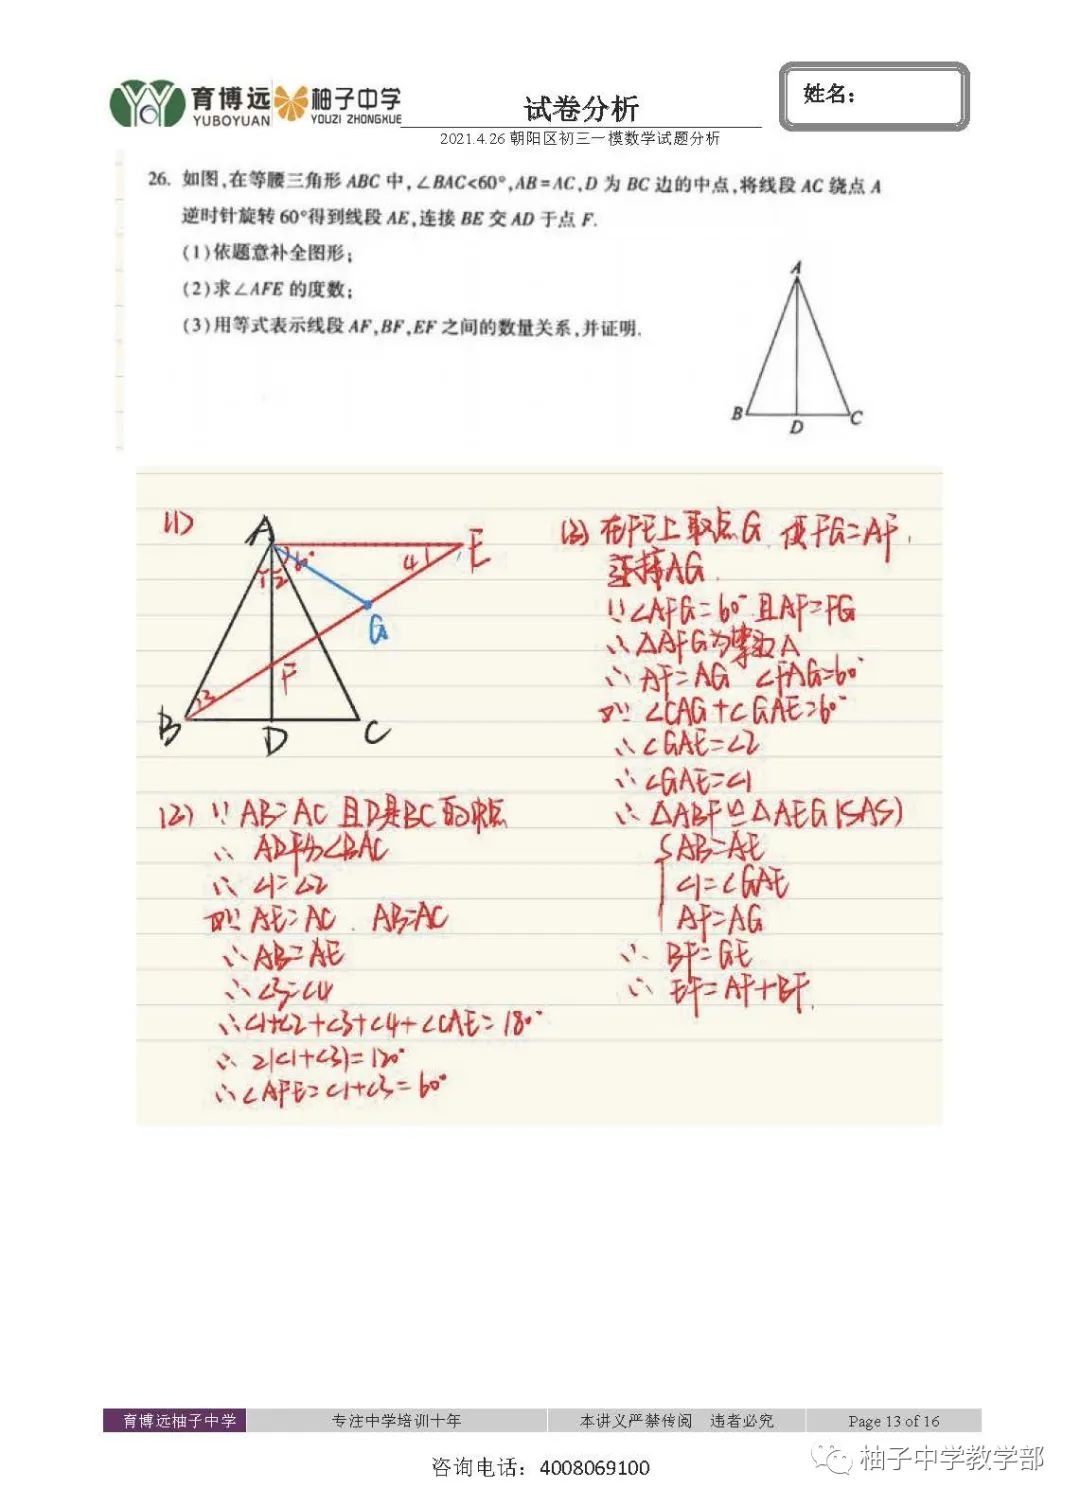 育博远
YUBOYUAN
柚子中学
YOUZI ZHONGXUE
试卷分析
姓名：
2021.4.26 朝阳区初三一模数学试题分析
26. 如图,在等腰三角形 ABC 中,∠BAC<60°,AB=AC,D 为 BC 边的中点,将线段 AC 绕点 A
逆时针旋转 60°得到线段 AE,连接 BE 交 AD 于点 F.
(1)依题意补全图形;
(2)求∠AFE 的度数;
(3)用等式表示线段 AF,BF,EF 之间的数量关系,并证明.
A
B
D
C
(1)
A
E
1 2
60°
4
G
F
3
B
D
C
(2) ∵ AB=AC 且D是BC的中点
∴ AD平分∠BAC
∴ ∠1=∠2
又∵ AE=AC . AB=AC
∴ AB=AE
∴ ∠3=∠4
∴ ∠1+∠2+∠3+∠4+∠CAE=180°
∴ 2(∠1+∠3)=120°
∴ ∠AFE=∠1+∠3=60°
(3) 在FE上取点G, 使FG=AF,
连接AG.
∵ ∠AFG=60°且AF=FG
∴ △AFG为等边△
∴ AF=AG ∠FAG=60°
又∵ ∠CAG+∠GAE=60°
∴ ∠GAE=∠2
∴ ∠GAE=∠1
∴ △ABF≌△AEG(SAS)
AB=AE
∠1=∠GAE
AF=AG
∴ BF=GE
∴ EF=AF+BF.
育博远柚子中学
专注中学培训十年
本讲义严禁传阅 违者必究
Page 13 of 16
柚子中学教学部
咨询电话：4008069100